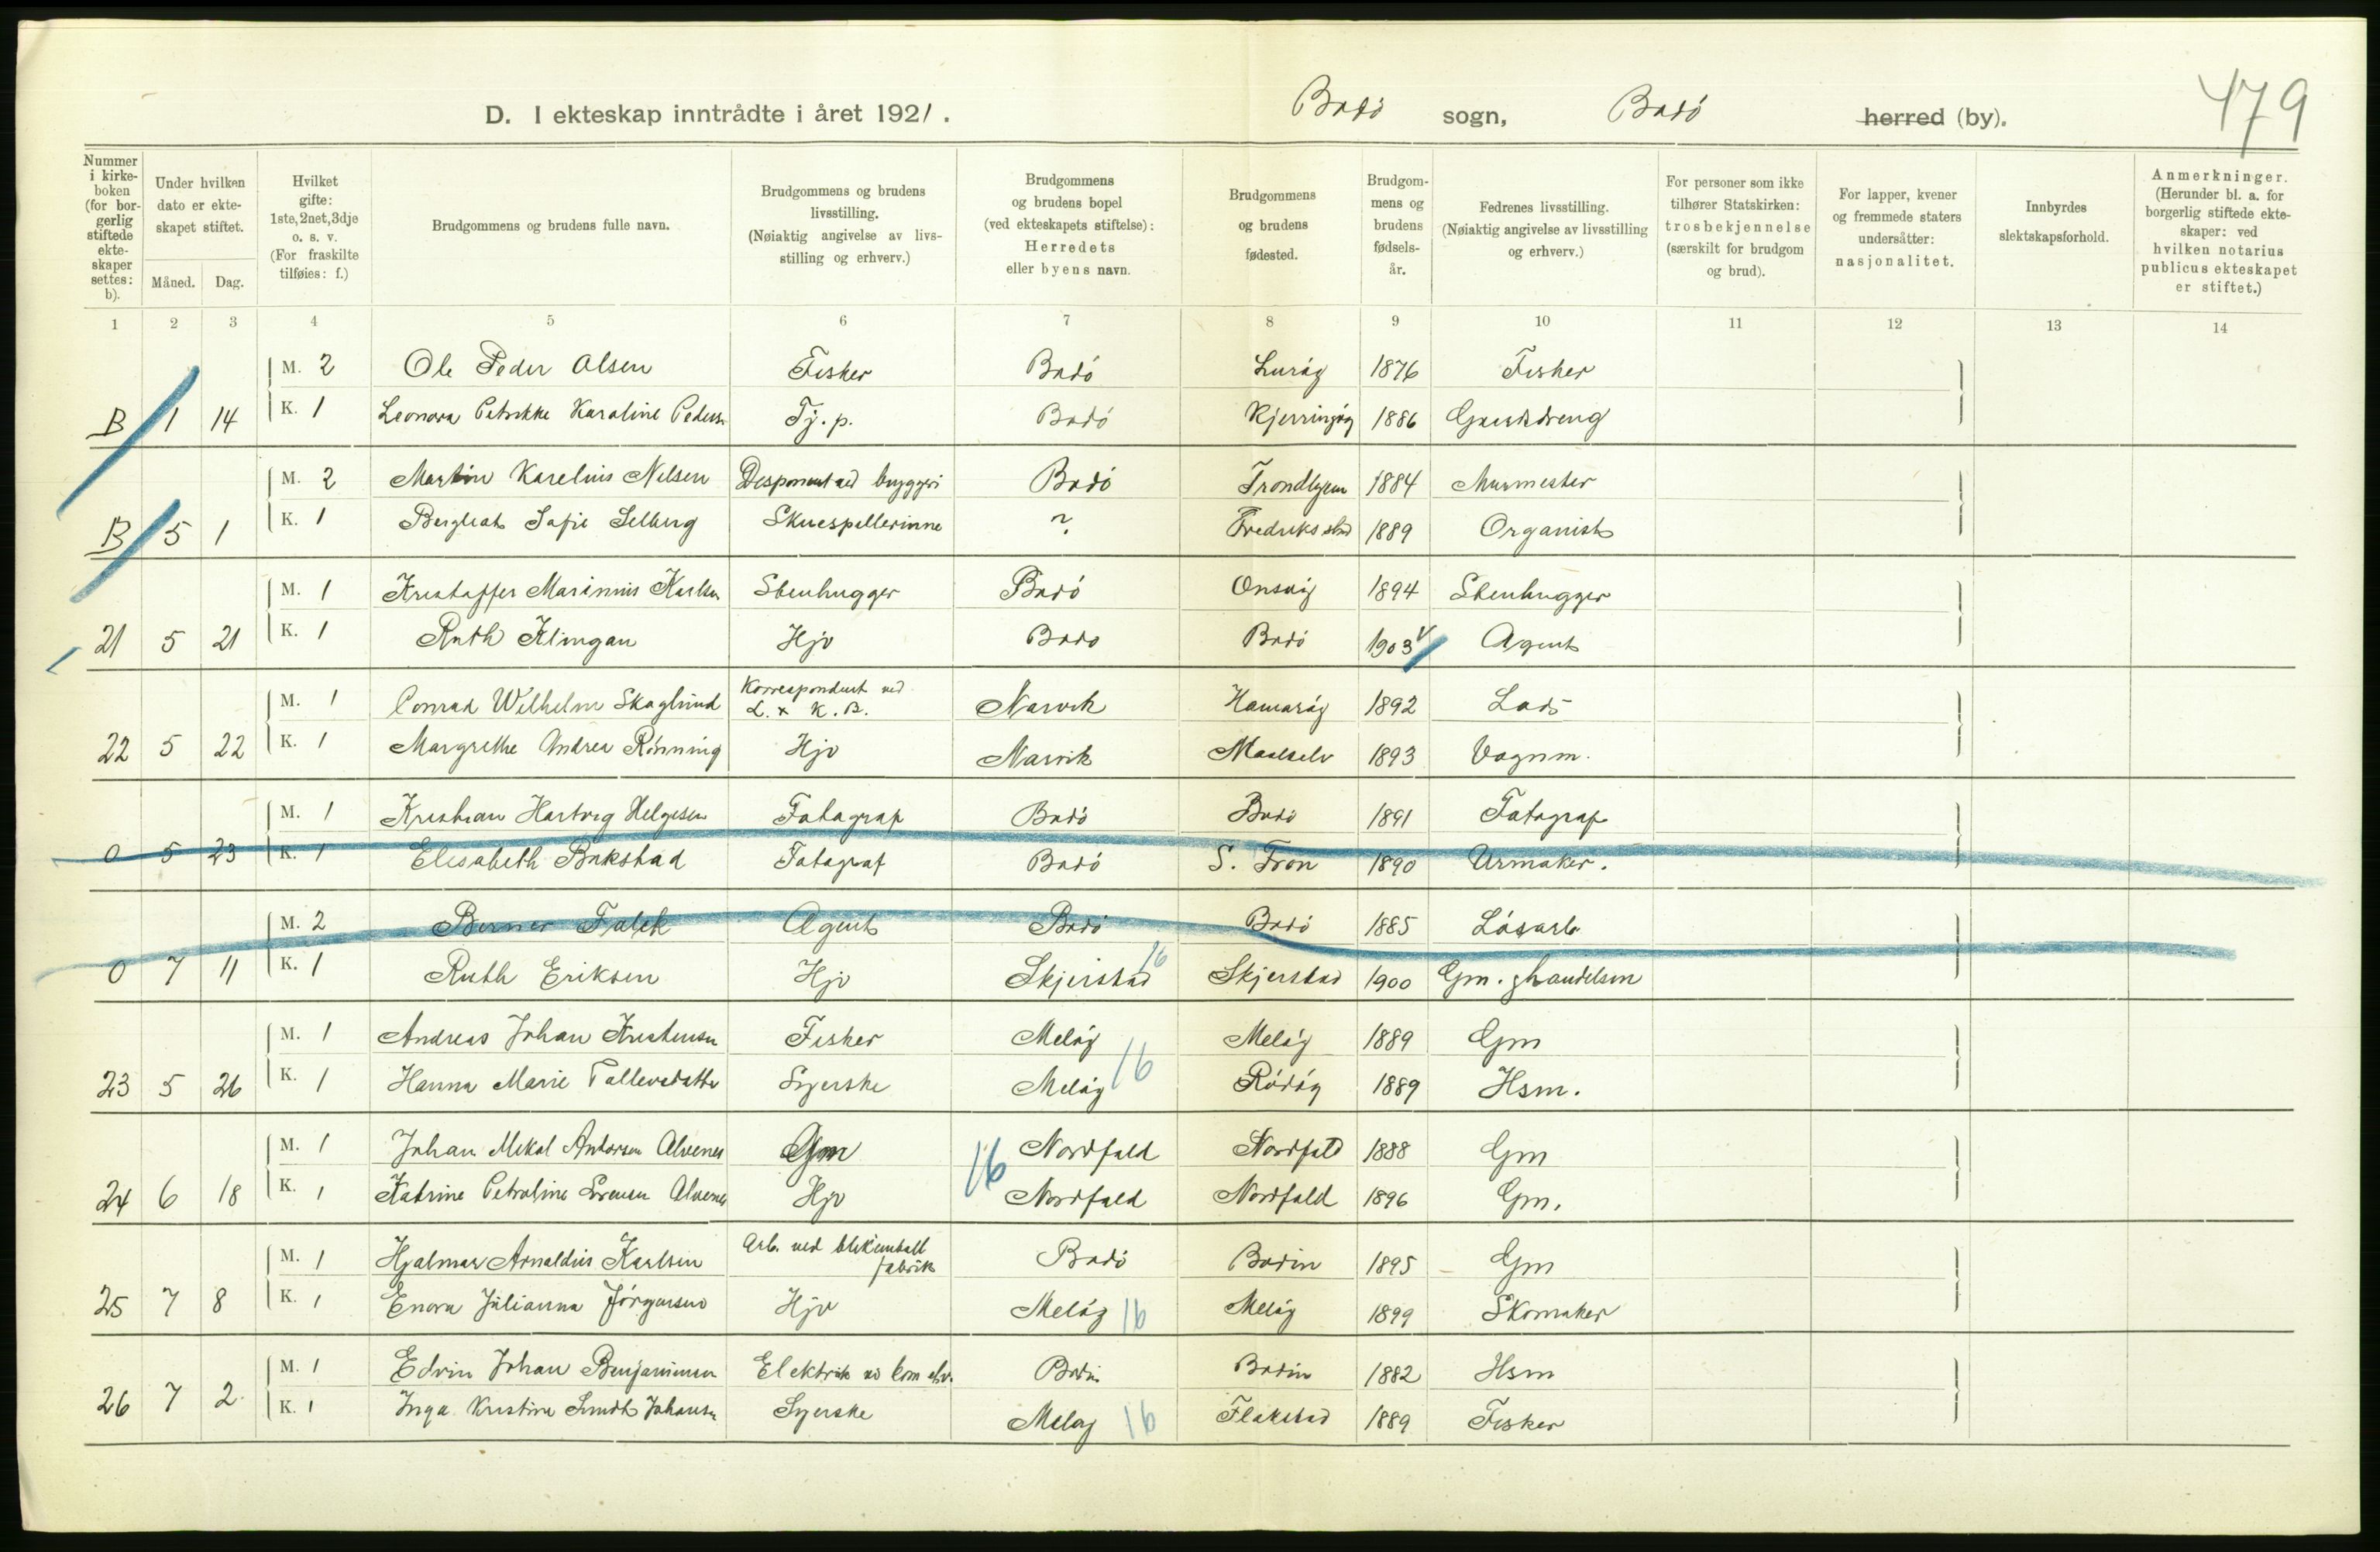 479
D. I ekteskap inntrådte i året 1921. Bodö sogn, Bodö herred (by).
Nummer i kirkeboken (for borgerlig stiftede ekteskaper settes: b).
Under hvilken dato er ekteskapet stiftet.
Måned. Dag.
Hvilket gifte: 1ste, 2net, 3dje o. s. v. (For fraskilte tilføies: f.)
Brudgommens og brudens fulle navn.
Brudgommens og brudens livsstilling. (Nøiaktig angivelse av livsstilling og erhverv.)
Brudgommens og brudens bopel (ved ekteskapets stiftelse): Herredets eller byens navn.
Brudgommens og brudens fødested.
Brudgommens og brudens fødselsår.
Fedrenes livsstilling. (Nøiaktig angivelse av livsstilling og erhverv.)
For personer som ikke tilhører Statskirken: trosbekjennelse (særskilt for brudgom og brud).
For lapper, kvener og fremmede staters undersåtter: nasjonalitet.
Innbyrdes slektskapsforhold.
Anmerkninger. (Herunder bl. a. for borgerlig stiftede ekteskaper: ved hvilken notarius publicus ekteskapet er stiftet.)
1 2 3 4 5 6 7 8 9 10 11 12 13 14
M. 2 Ole Peder Olsen Fisker Bodö Luröy 1876 Fisker
B 1 14 K. 1 Leonora Petrikke Karoline Peders Tj. p. Bodö Kjerringöy 1886 Gaardsdreng
M. 2 Martin Karelius Nilsen Disponent ved bryggeri Bodö Trondhjem 1884 Murmester
B 5 1 K. 1 Bergliot Sofie Selberg Skuespillerinne ? Fredriksstad 1889 Organist
M. 1 Kristoffer Marinius Karlsen Stenhugger Bodö Onsöy 1894 Stenhugger
21 5 21 K. 1 Ruth Klingan Hjv Bodö Bodö 1903 Agent
M. 1 Conrad Wilhelm Skoglund Korrespondent ved L. x K. B. Narvik Hamaröy 1892 Lods
22 5 22 K. 1 Margrethe Andrea Rönning Hjv Narvik Maalselv 1893 Vognm.
M. 1 Kristian Hartvig Helgesen Fotograf Bodö Bodö 1891 Fotograf
0 5 23 K. 1 Elisabeth Bakstad Fotograf Bodö S. Fron 1890 Urmaker.
M. 2 Berner Falck Agent Bodö Bodö 1885 Lösarb
0 7 11 K. 1 Ruth Eriksen Hjv Skjerstad 16 Skjerstad 1900 Gm. & handelsm
M. 1 Andreas Johan Kristensen Fisker Melöy Melöy 1889 Gm
23 5 26 K. 1 Hanna Marie Tollevsdatter Syerske Melöy 16 Rödöy 1889 Hsm.
M. 1 Johan Mikal Antonsen Alvenes Gm 16 Nordfold Nordfold 1888 Gm
24 6 18 K. 1 Katrine Petroline Sörensen Alvenes Hjv Nordfold Nordfold 1896 Gm.
M. 1 Hjalmar Arnoldus Karlsen Arb. ved blikemball fabrik Bodö Bodin 1895 Gm
25 7 8 K. 1 Enora Julianna Jörgensen Hjv Melöy 16 Melöy 1899 Skomaker
M. 1 Edvin Johan Benjaminsen Elektrik ved kom elv. Bodin Bodin 1882 Hsm
26 7 2 K. 1 Inga Kristine Smidt Johansen Syerske Melöy 16 Flakstad 1889 Fisker